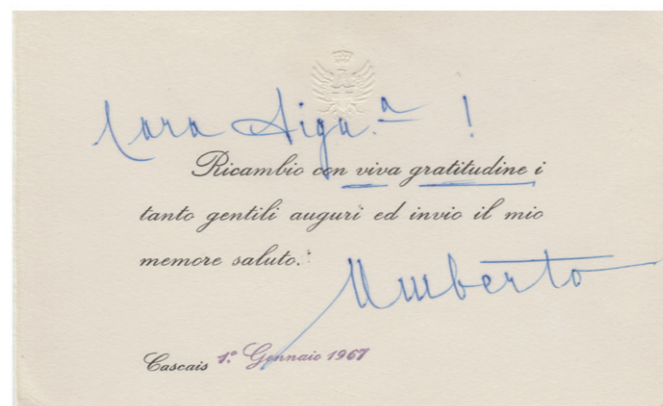 Cara Sig.ª !
Ricambio con viva gratitudine i
tanto gentili auguri ed invio il mio
memore saluto.
Umberto
Cascais 1º Gennaio 1967